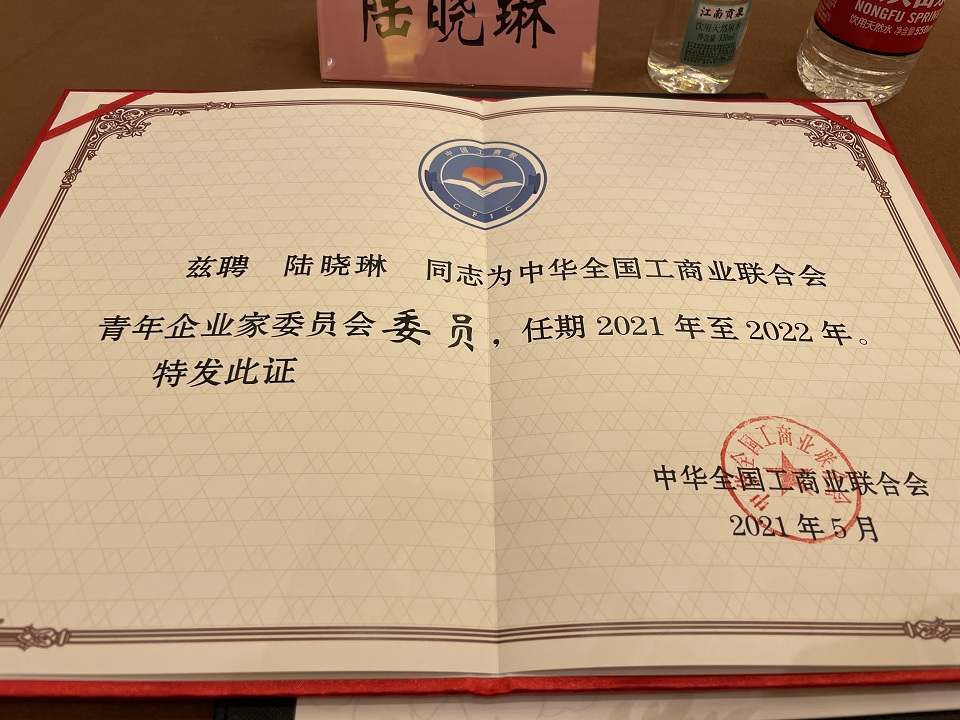 陆晓琳
江南贡泉
饮用天然泉水
净含量:320ml
NONGFU SPRING
饮用天然水 净含量550ml
中国工商联
CFIC
兹聘 陆晓琳 同志为中华全国工商业联合会
青年企业家委员会委员，任期2021年至2022年。
特发此证
中华全国工商业联合会
中华全国工商业联合会
2021年5月